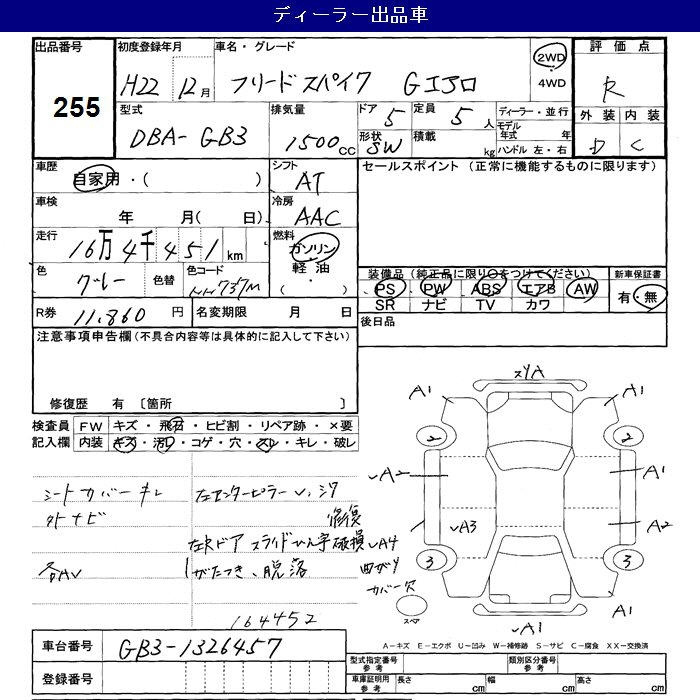 ディーラー出品車
出品番号 初度登録年月 車名・グレード 評価点
255
H22 12月 フリード スパイク Gエアロ 2WD 4WD R
型式 排気量 ドア 定員 ディーラー・並行 外装 内装
DBA-GB3 1500cc 5 5人 モデル年式 年 D C
形状 SW 積載 kg ハンドル 左・右
車歴 自家用・( ) シフト AT セールスポイント (正常に機能するものに限ります)
車検 年 月( 日) 冷房 AAC
走行 16万4千451km 燃料 ガソリン 軽油 ・( )
色 グレー 色替 色コード NH737M
装備品 (純正品に限り○をつけてください) 新車保証書
PS PW ABS エアB AW 有・無
SR ナビ TV カワ
R券 11,860円 名変期限 月 日 後日品
注意事項申告欄 (不具合内容等は具体的に記入して下さい)
修復歴 有 [箇所 ]
検査員 FW キズ・飛石・ヒビ割・リペア跡・×要
記入欄 内装 キズ・汚レ・コゲ・穴・スレ・キレ・破レ
シートカバーキレ 左センターピラーU、シワ
外ナビ 修復
左Rドア スライド 破損 曲がり
ガタつき、脱落 カバー欠
164452
スリA
A1 A1
2 2
A2 A1
A3 A2
A4
3 3
A1 A1
A1
スペア
A-キズ E-エクボ U-凹み W-補修跡 S-サビ C-腐食 XX-交換済
車台番号 GB3-1326457
登録番号
型式指定番号 参考 類別区分番号 参考
車庫証明用 参考 長さ cm 幅 cm 高さ cm